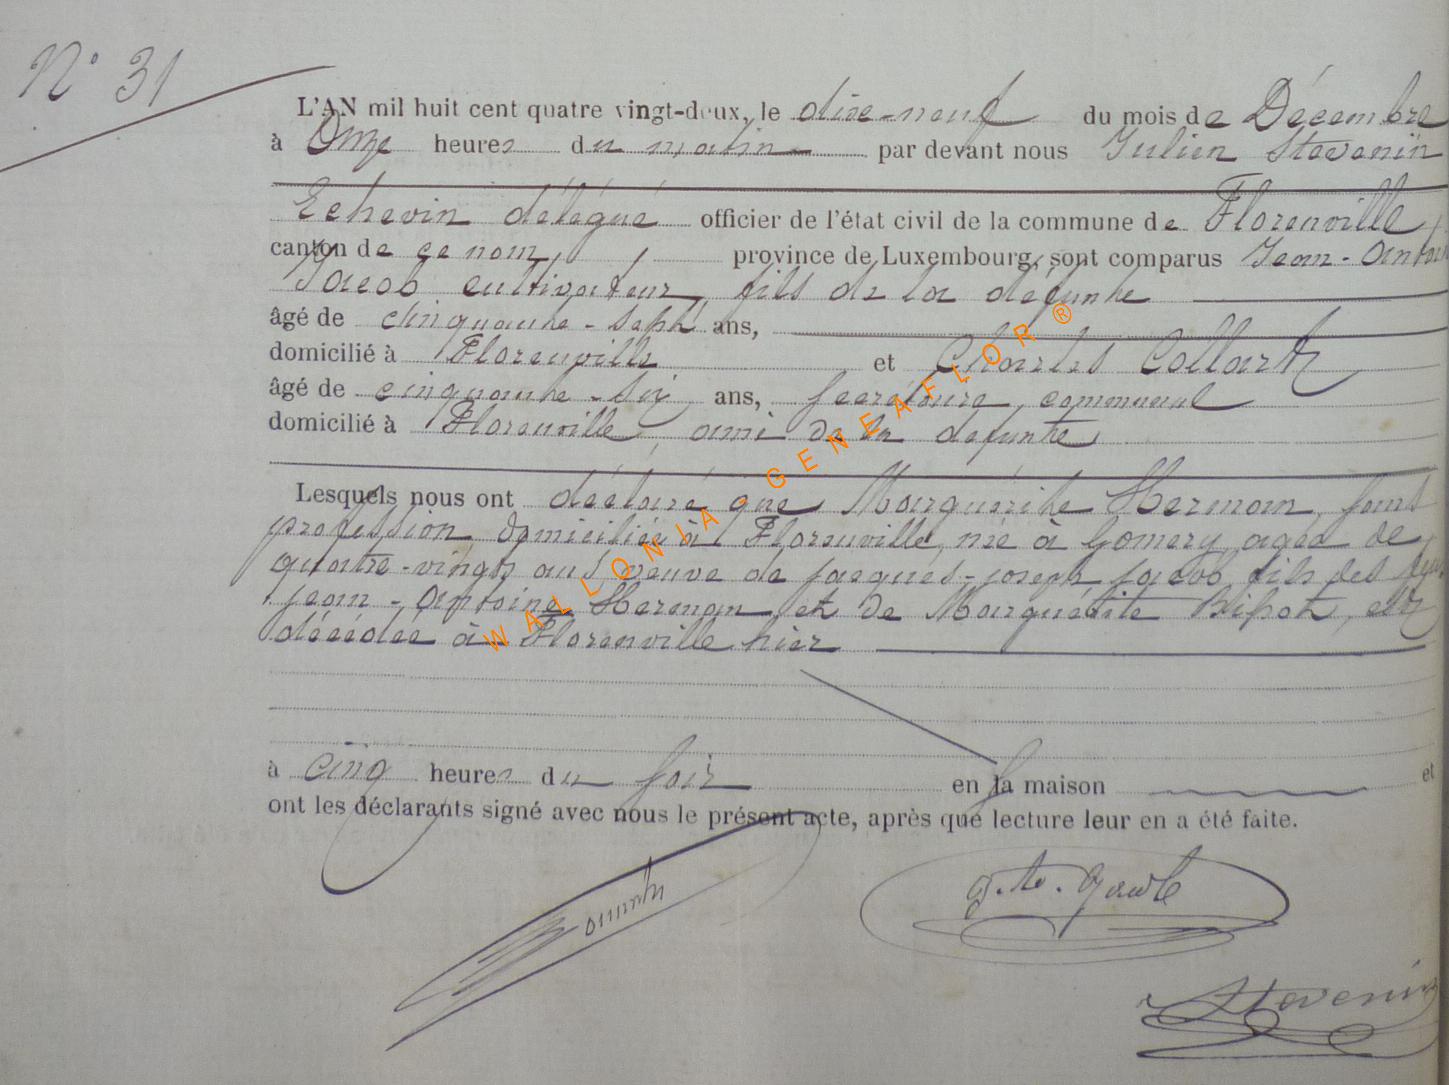 N° 31
L'AN mil huit cent quatre vingt-deux, le dixe-neuf du mois de Décembre
à Onze heures du matin par devant nous Julien Stevenin
Echevin délégué officier de l'état civil de la commune de Florenville
canton de ce nom, province de Luxembourg, sont comparus Jean-Antoine
Jacob cultivateur, fils de la défunte
âgé de cinquante-sept ans,
domicilié à Florenville et Charles Collart
âgé de cinquante-six ans, secrétaire communal
domicilié à Florenville, ami de la défunte
Lesquels nous ont déclaré que Marguérite Herman, sans
profession domiciliée à Florenville, née à Gomery, agée de
quatre-vingts ans, veuve de jacques-joseph jacob, fils des feus
jean-Antoine Herman et de Marguérite, est
décédée à Florenville hier
à cinq heures du soir en sa maison et
ont les déclarants signé avec nous le présent acte, après que lecture leur en a été faite.
Stevenin
WALLONIA-GENEAFLOR ®